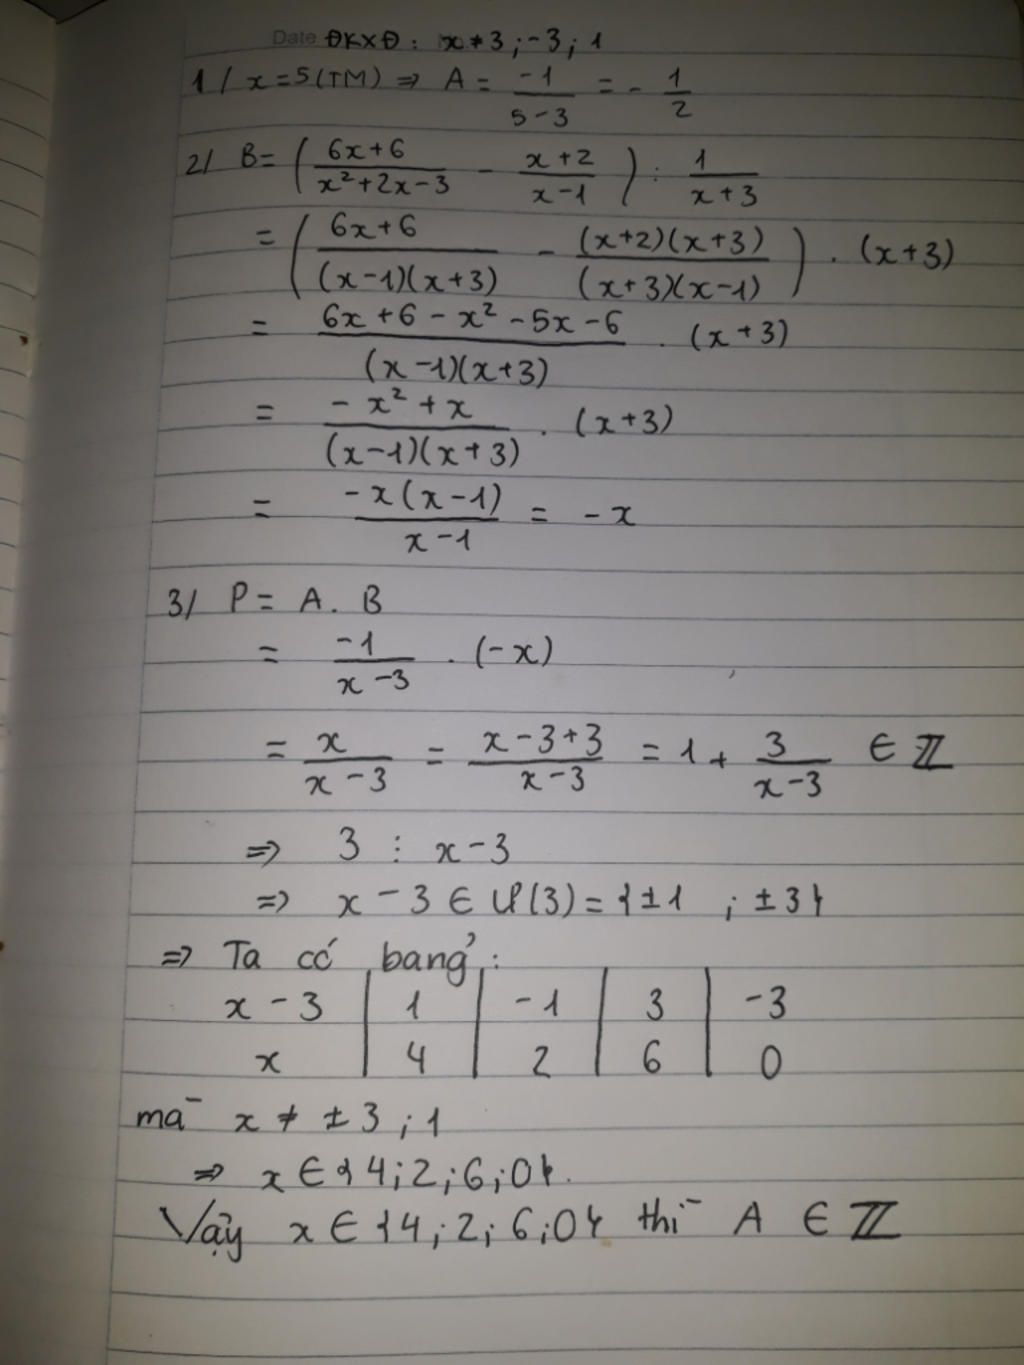 Date ĐKXĐ : x ≠ 3 ; -3 ; 1
1/ x = 5 (TM) => A = -1/(5-3) = -1/2
2/ B = ( (6x+6)/(x²+2x-3) - (x+2)/(x-1) ) : 1/(x+3)
= ( (6x+6)/((x-1)(x+3)) - ((x+2)(x+3))/((x+3)(x-1)) ) . (x+3)
= (6x+6-x²-5x-6)/((x-1)(x+3)) . (x+3)
= (-x²+x)/((x-1)(x+3)) . (x+3)
= (-x(x-1))/(x-1) = -x
3/ P = A . B
= -1/(x-3) . (-x)
= x/(x-3) = (x-3+3)/(x-3) = 1 + 3/(x-3) ∈ ℤ
=> 3 ⋮ x-3
=> x - 3 ∈ Ư(3) = {±1 ; ±3}
=> Ta có bảng :
x - 3 | 1 | -1 | 3 | -3
x | 4 | 2 | 6 | 0
mà x ≠ ±3 ; 1
=> x ∈ {4 ; 2 ; 6 ; 0}.
Vậy x ∈ {4 ; 2 ; 6 ; 0} thì A ∈ ℤ